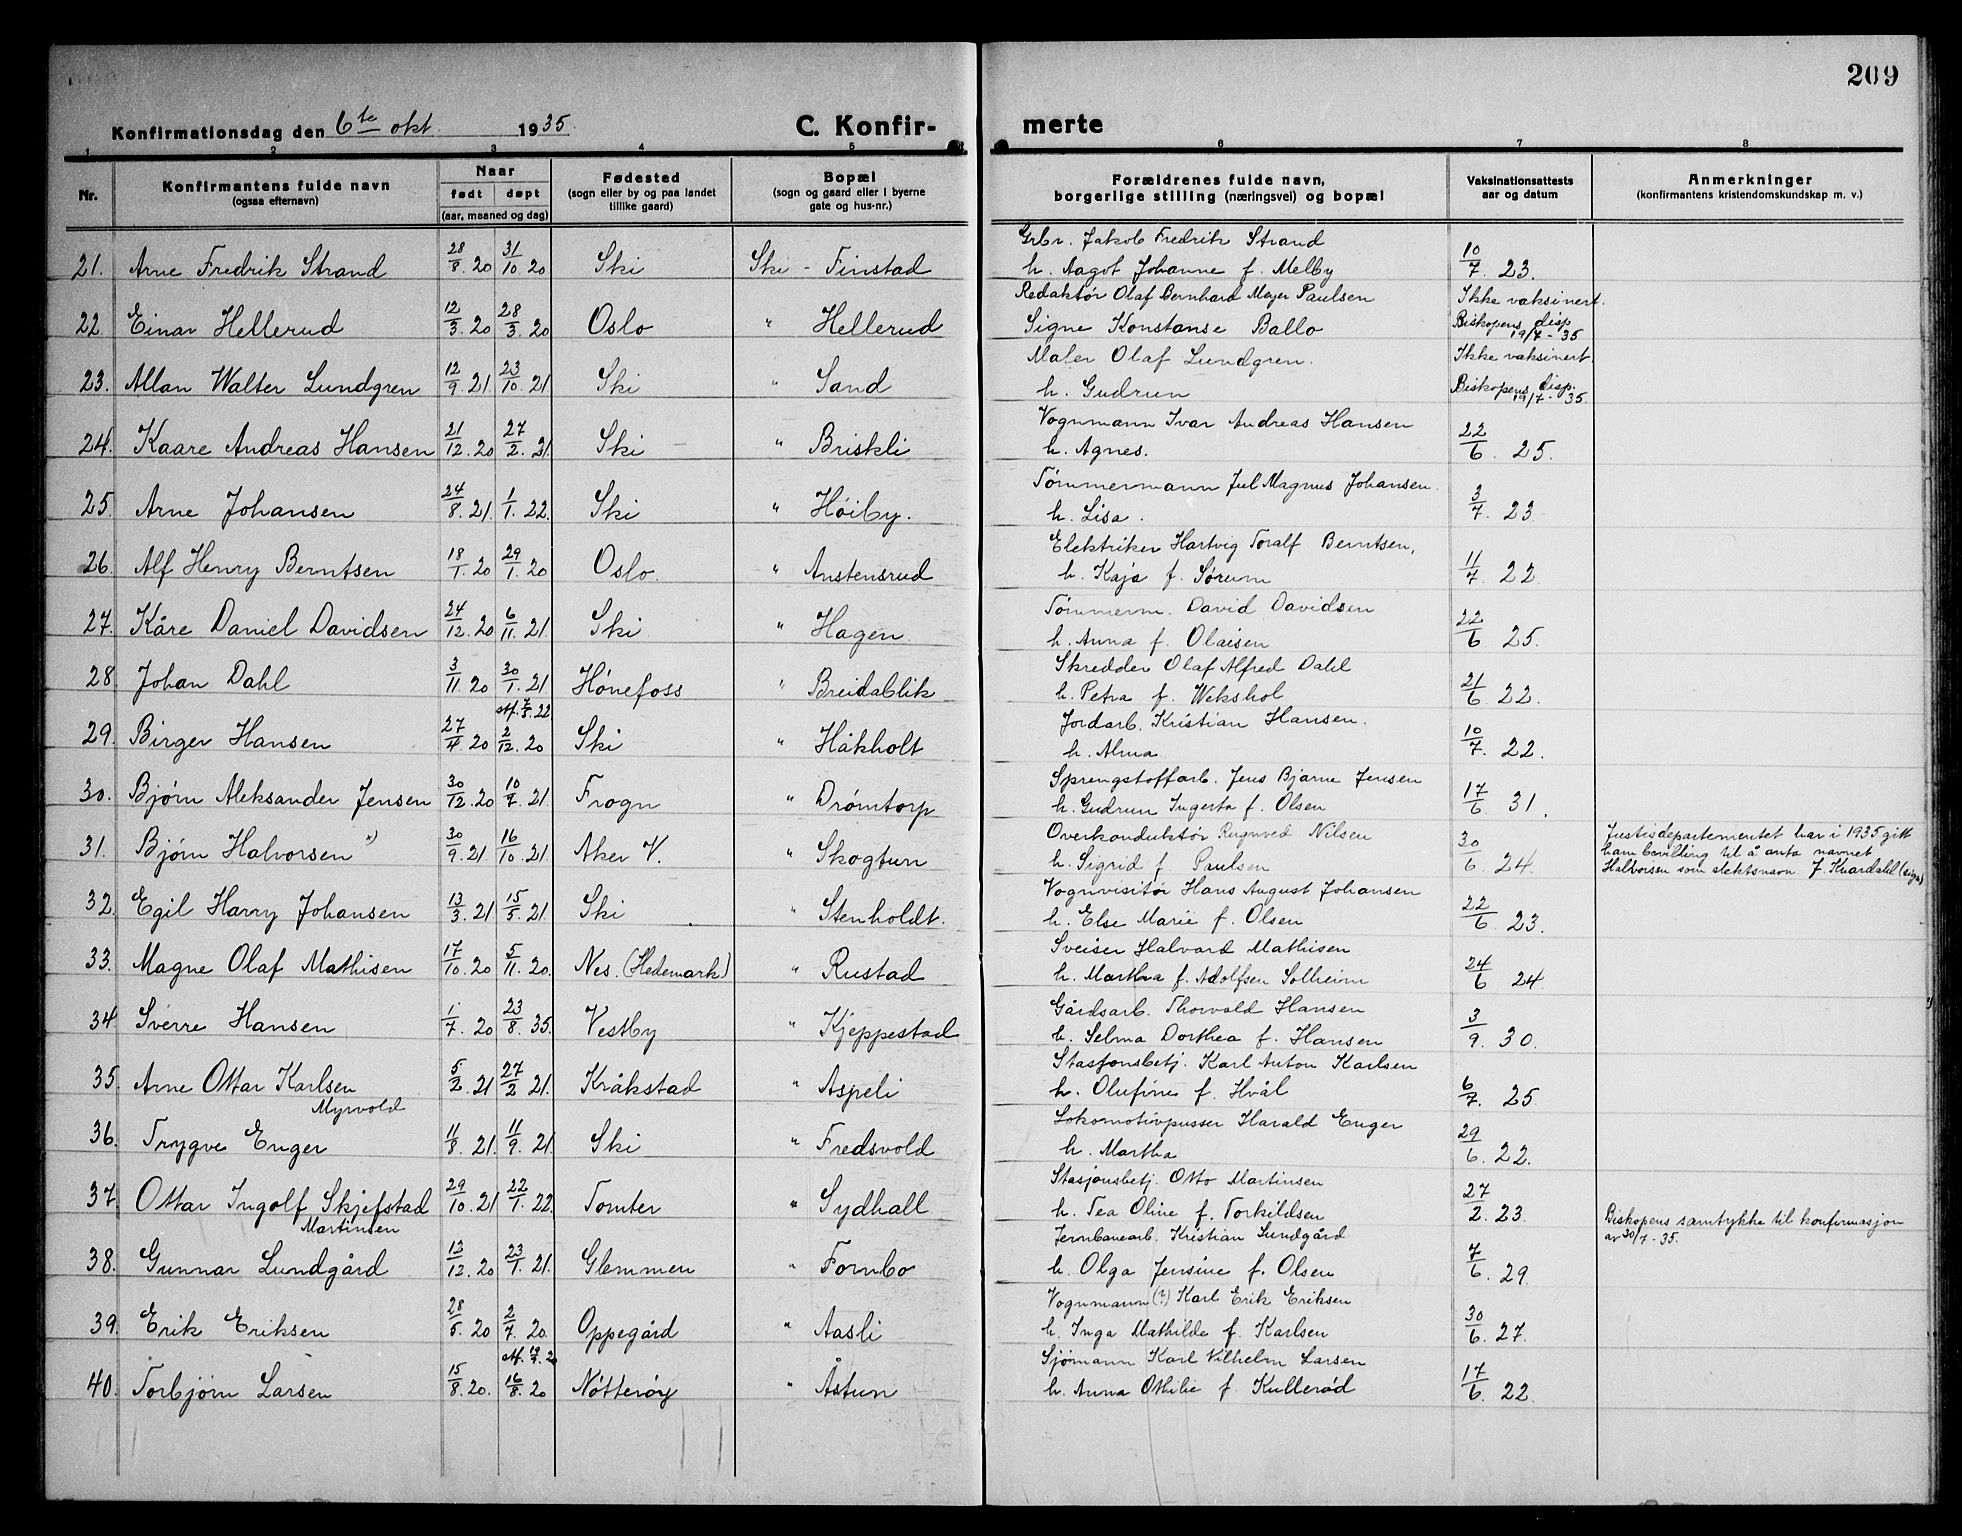 209
Konfirmationsdag den 6te okt. 1935. C. Konfir- merte
1 2 3 4 5 6 7 8
Nr. Konfirmantens fulde navn (ogsaa efternavn) Naar født døpt (aar, maaned og dag) Fødested (sogn eller by og paa landet tillike gaard) Bopæl (sogn og gaard eller i byerne gate og hus-nr.) Forældrenes fulde navn, borgerlige stilling (næringsvei) og bopæl Vaksinationsattests aar og datum Anmerkninger (konfirmantens kristendomskundskap m. v.)
Grbr. Jakob Fredrik Strand
21. Arne Fredrik Strand 28/8. 20 31/10. 20 Ski Ski - Finstad h. Aagot Johanne f. Melby 10/7. 23.
Redaktør Olaf Bernhard Meyer Paulsen Ikke vaksinert.
22 Einar Hellerud 12/3. 20 28/3. 20 Oslo " Hellerud Signe Konstanse Ballo Biskopens disp 19/7-35
Maler Olaf Lundgren. Ikke vaksinert.
23. Allan Walter Lundgren 12/9. 21 23/10. 21 Ski " Sand h. Gudrun Biskopens disp. 19/7-35.
Vognmann Ivar Andreas Hansen
24. Kaare Andreas Hansen 21/12. 20 27/2. 21. Ski " Briskli h. Agnes. 22/6. 25.
Tømmermann Jul Magnus Johansen.
25. Arne Johansen 24/8. 21. 1/1. 22. Ski " Høiby. h. Lisa. 3/7. 23
Elektriker Hartvig Toralf Berntsen,
26. Alf Henry Berntsen 18/1. 20 29/1. 20 Oslo. " Anstensrud h. Kaja f. Sørum 11/7. 22
Tømmerm. David Davidsen
27. Kåre Daniel Davidsen 24/12. 20 6/11. 21. Ski " Hagen. h. Anna f. Olaisen 22/6 25.
Skredder Olaf Alfred Dahl
28. Johan Dahl 3/11. 20 30/1. 21 Hønefoss " Breidablik h. Petra f. Wekshol 21/6 22.
Jordarb. Kristian Hansen.
29. Birger Hansen 27/4 20 2/12. 20 Ski " Håkholt h. Alma 10/7. 22.
Sprengstoffarb. Jens Bjarne Jensen
30. Bjørn Aleksander Jensen 30/12. 20 10/7. 21. Frogn " Drømtorp h. Gudrun Ingerta f. Olsen 17/6 31.
Overkonduktør Rugnved Nilsen Justisdepartementet har i 1935 gitt
31. Bjørn Halvorsen x) 30/9. 21 16/10. 21. Aker V. " Skogtun h. Sigrid f. Paulsen 30/6 24. ham bevilling til å anta navnet
Halvorsen som slektsnavn
Vognvisitør Hans August Johansen
32. Egil Harry Johansen 13/3. 21 15/5. 21 Ski " Stenholdt. h. Else Marie f. Olsen 22/6 23.
Sveiser Halvard Mathisen
33. Magne Olaf Mathisen 17/10. 20 5/11. 20. Nes. (Hedemark) " Rustad h. Martha f. Adolfsen Solheim 24/6 24.
Gårdsarb. Thorvald Hansen
34 Sverre Hansen 1/7. 20 23/8. 35. Vestby " Kjeppestad h. Selma Dorthea f. Hansen 3/9. 30.
Stasjonsbetj. Karl Anton Karlsen
35. Arne Ottar Karlsen 5/2. 21 27/2 21. Kråkstad " Aspeli h. Olufine f. Hvål 6/7. 25.
Myrvold
Lokomotivpusser Harald Enger
36. Trygve Enger 11/8. 21. 11/9. 21. Ski " Fredsvold h. Martha 29/6. 22.
Stasjonsbetj. Otto Martinsen
37. Ottar Ingolf Skjefstad 29/10. 21 22/1. 22. Tomter " Sydhall h. Tea Oline f. Torkildsen 27/2. 23.
Martinsen Biskopens samtykke til konfirmasjon
Jernbanearb. Kristian Lundgård av 30/7-35.
38. Gunnar Lundgård 13/12. 20 23/1. 21. Glemmen " Fornbo h. Olga Jensine f. Olsen 7/6. 29.
Vognmann (?) Karl Erik Eriksen
39. Erik Eriksen 28/5. 20 2/7. 20. Oppegård " Aasli h. Inga Mathilde f. Karlsen 30/6. 27.
Sjømann Karl Vilhelm Larsen
40. Torbjørn Larsen 15/8. 20. 16/8. 20 Nøtterøy " Åstun h. Anna Othilie f. Kullerød 17/6. 22.